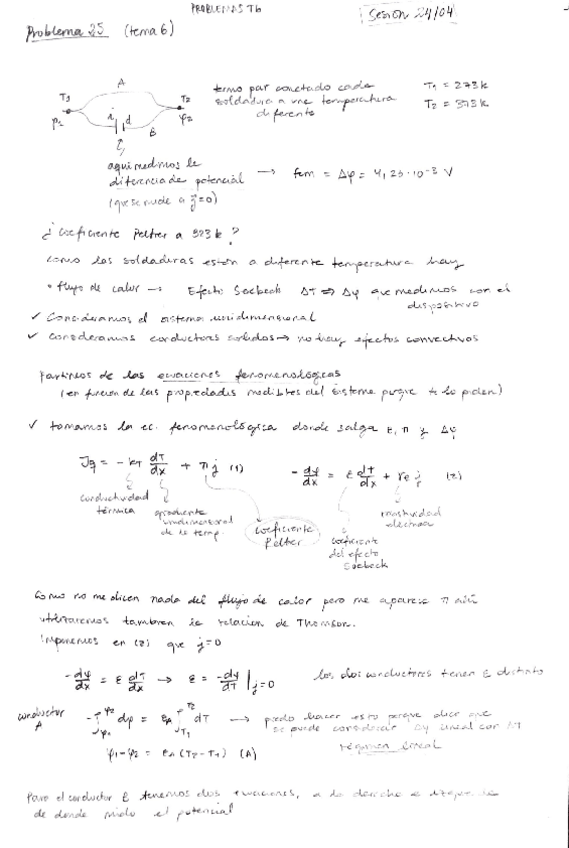 PROBLEMAS T6
Sesión 24/04
Problema 25 (tema 6)
A
T1
T2
φ1
φ2
i
d
B
termo par conectado cada
soldadura a una temperatura
diferente
T1 = 273 K
T2 = 373 K
aquí medimos la
diferencia de potencial
(que se mide a j=0)
→ fem = Δφ = 4,25·10⁻³ V
¿Coeficiente Peltier a 323 K?
Como las soldaduras están a diferente temperatura hay
• flujo de calor → Efecto Seebeck ΔT ⇒ Δφ que medimos con el
dispositivo
✓ Consideramos el sistema unidimensional
✓ Consideramos conductores sólidos → no hay efectos convectivos
Partimos de las ecuaciones fenomenológicas
(en función de las propiedades medibles del sistema porque te lo piden)
✓ tomamos la ec. fenomenológica donde salga ε, π y Δφ
Jq = -kT dT/dx + π j (1)
-dφ/dx = ε dT/dx + re j (2)
conductividad
térmica
gradiente
unidimensional
de la temp.
coeficiente
Peltier
coeficiente
del efecto
Seebeck
resistividad
eléctrica
Como no me dicen nada del flujo de calor pero me aparece π aún
utilizaremos también la relación de Thomson.
Imponemos en (2) que j=0
-dφ/dx = ε dT/dx → ε = -dφ/dT |j=0
los dos conductores tienen ε distinto
conductor
A
-∫φ1 φ2 dφ = εA ∫T1 T2 dT → puedo hacer esto porque dice que
se puede considerar Δφ lineal con ΔT
régimen lineal
φ1-φ2 = εA (T2-T1) (A)
Para el conductor B tenemos dos ecuaciones, a la derecha e izquierda
de donde mido el potencial